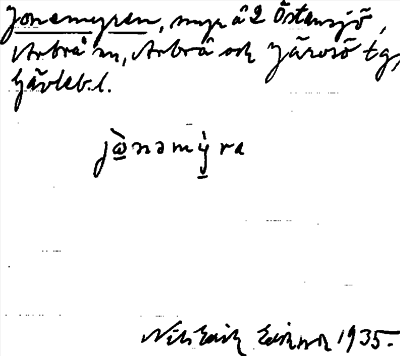 Jonemyren, myr å 2 Östansjö,
Arbrå sn, Arbrå och Järvsö tg,
Gävleb.l.
jò̱nəmỳ̱ra
Nils Erik Eriksson 1935.